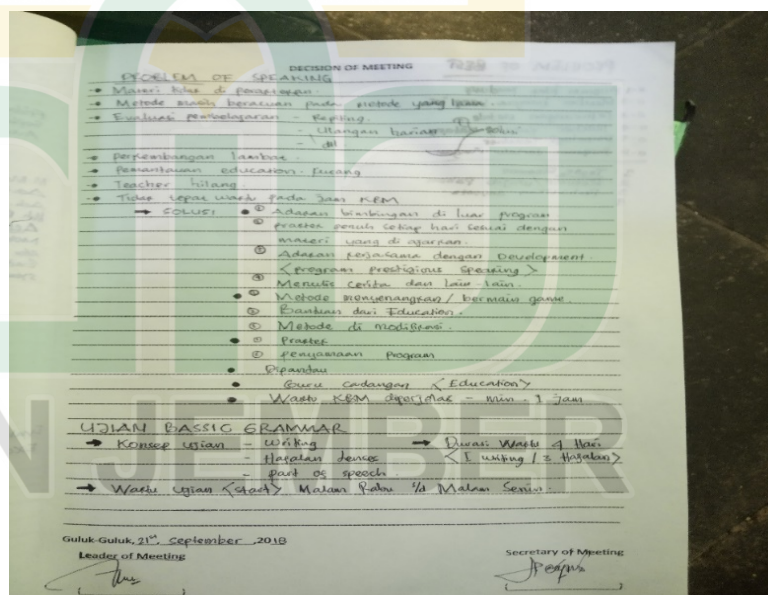 DECISION OF MEETING
PROBLEM OF SPEAKING
Materi tidak di
Metode masih beracuan pada metode yang lama
Evaluasi pembelajaran - Repiting.
- Ulangan harian
- dll
Perkembangan lambat.
Pemantauan education kurang
Teacher hilang
Tidak tepat waktu pada Jam KBM
→ SOLUSI ① Adakan bimbingan di luar program
② praktek penuh setiap hari sesuai dengan
materi yang di ajarkan.
③ Adakan kerjasama dengan Development
<program prestigious speaking>
④ Menulis cerita dan lain-lain.
① Metode menyenangkan / bermain game.
② Bantuan dari Education.
③ Metode di modifikasi.
① Praktek
② penyamaan program
Dipandu
Guru cadangan <Education>
Waktu KBM - min. 1 Jam
UJIAN BASSIC GRAMMAR
→ Konsep ujian - Writing → Durasi Waktu 4 Hari
- Hafalan tenses <1 writing / 3 Hafalan>
- part of speech.
→ Waktu ujian <start> Malam Rabu s/d Malam Senin.
Guluk-Guluk, 21st, September, 2018
Leader of Meeting Secretary of Meeting
N JEMBER